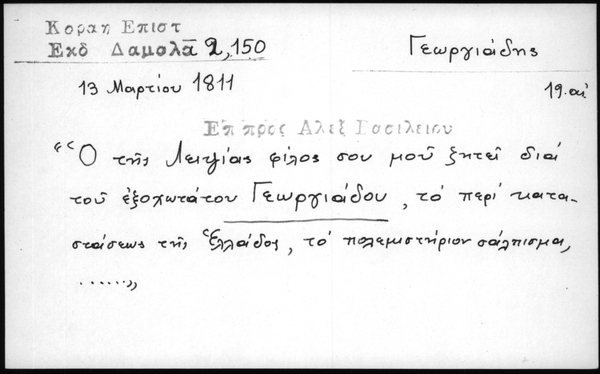 Κοραη Επιστ
Εκδ Δαμαλᾶ 2,150
Γεωργιάδης
13 Μαρτίου 1811
19.αἰ
Επ προς Αλεξ Βασιλειου
"Ὁ τῆς Λειψίας φίλος σου μοῦ ζητεῖ διά
τοῦ ἐξοχωτάτου Γεωργιάδου, τό περί κατα-
στάσεως τῆς Ἑλλάδος, τό πολεμιστήριον σάλπισμα,
......„